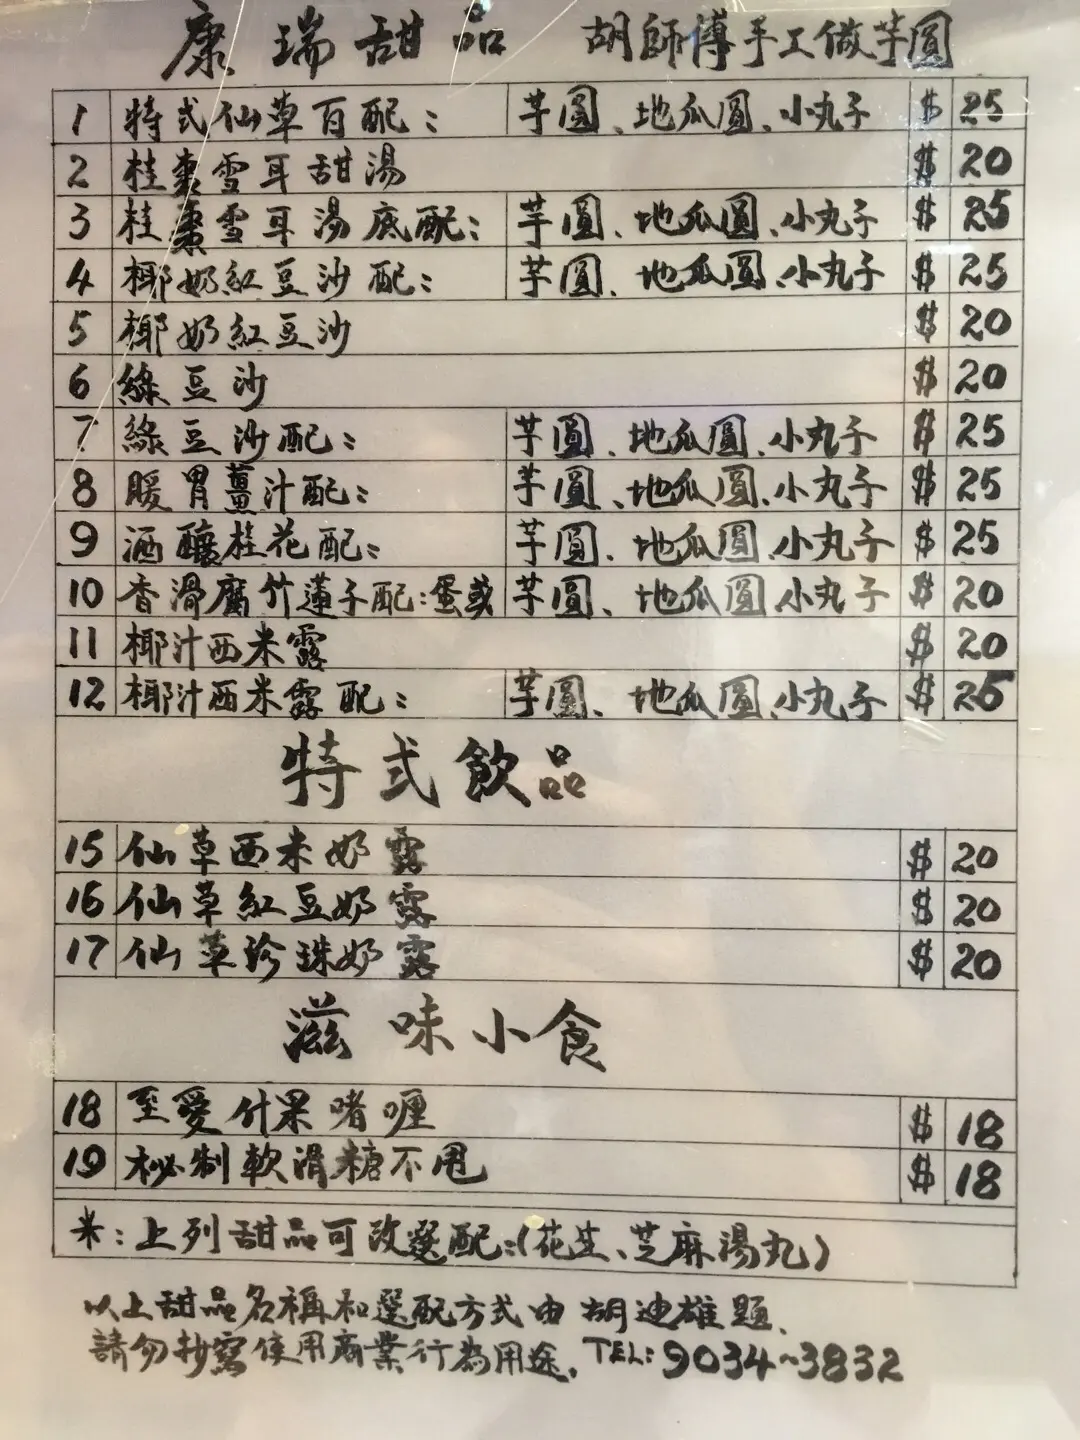 康瑞甜品 胡師傅手工做芋圓
1 特式仙草百配： 芋圓、地瓜圓、小丸子 $ 25
2 桂棗雪耳甜湯 $ 20
3 桂棗雪耳湯底配： 芋圓、地瓜圓、小丸子 $ 25
4 椰奶紅豆沙配： 芋圓、地瓜圓、小丸子 $ 25
5 椰奶紅豆沙 $ 20
6 綠豆沙 $ 20
7 綠豆沙配： 芋圓、地瓜圓、小丸子 $ 25
8 暖胃薑汁配： 芋圓、地瓜圓、小丸子 $ 25
9 酒釀桂花配： 芋圓、地瓜圓、小丸子 $ 25
10 香滑腐竹蓮子配：蛋或 芋圓、地瓜圓、小丸子 $ 20
11 椰汁西米露 $ 20
12 椰汁西米露配： 芋圓、地瓜圓、小丸子 $ 25
特式飲品
15 仙草西米奶露 $ 20
16 仙草紅豆奶露 $ 20
17 仙草珍珠奶露 $ 20
滋味小食
18 至愛什果啫喱 $ 18
19 秘制軟滑糖不甩 $ 18
米：上列甜品可改選配：（花生、芝麻湯丸）
以上甜品名稱和選配方式由胡迪雄題、
請勿抄寫使用商業行為用途. TEL：9034~3832